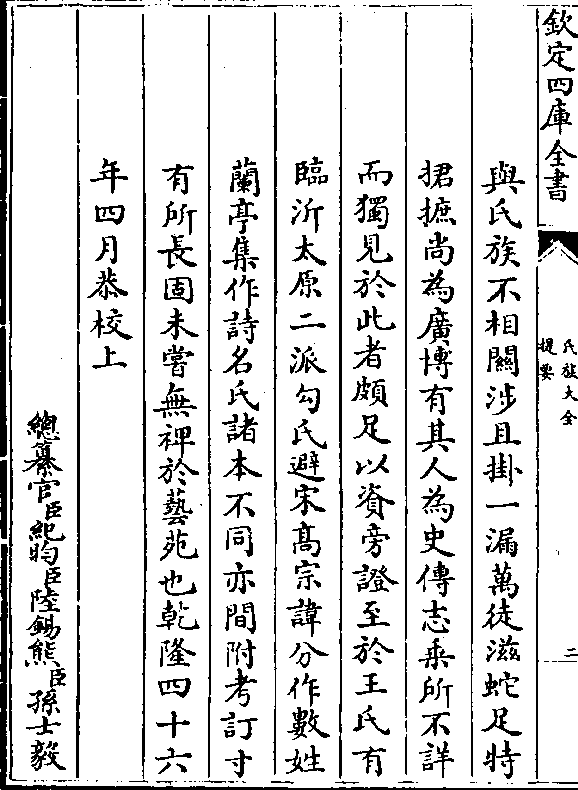 欽定四庫全書
氏族大全
提要
二
與氏族不相關涉且掛一漏萬徒滋蛇足特
捃摭尚為廣博有其人為史傳志乘所不詳
而獨見於此者頗足以資旁證至於王氏有
臨沂太原二派勾氏避宋髙宗諱分作數姓
蘭亭集作詩名氏諸本不同亦間附考訂寸
有所長固未嘗無裨於藝苑也乾隆四十六
年四月恭校上
總纂官臣紀昀臣陸錫熊臣孫士毅